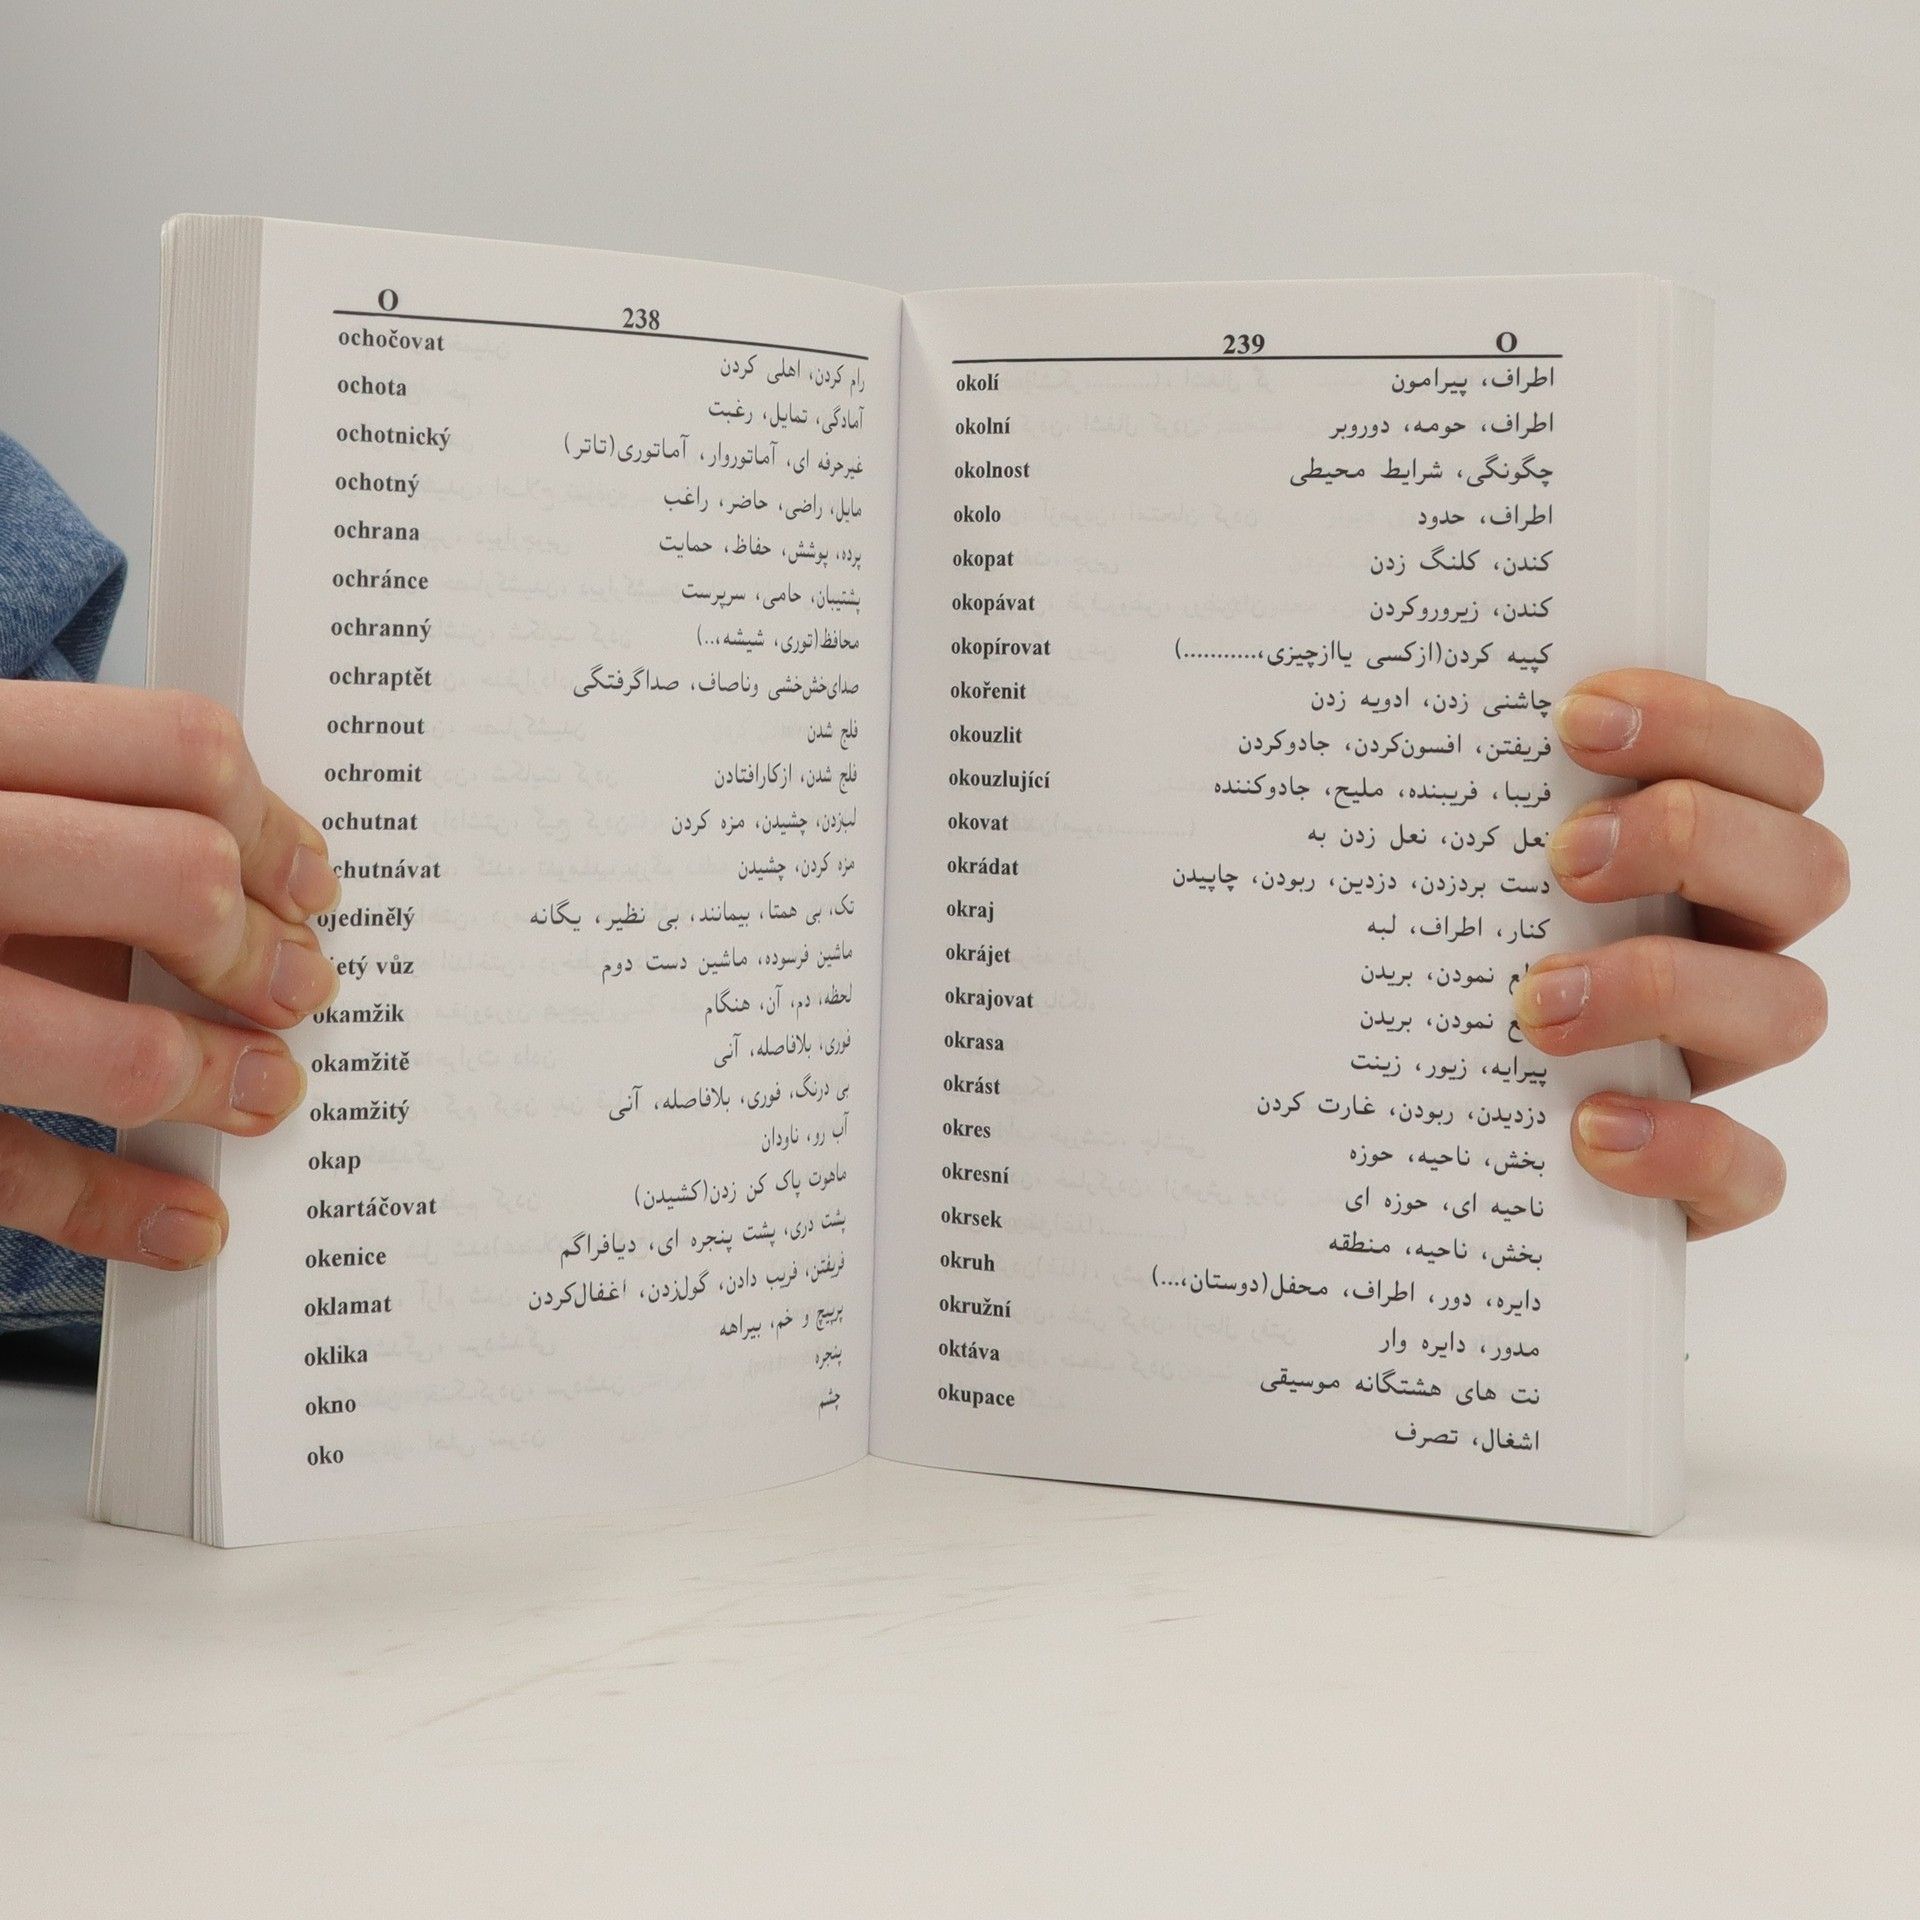 O 238
ochočovat رام کردن، اهلی کردن
ochota آمادگی، تمایل، رغبت
ochotnický غیرحرفه ای، آماتوروار، آماتوری(تاتر)
ochotný مایل، راضی، حاضر، راغب
ochrana پرده، پوشش، حفاظ، حمایت
ochránce پشتیبان، حامی، سرپرست
ochranný محافظ(توری، شیشه،..)
ochraptět صدای‌خش‌خشی وناصاف، صداگرفتگی
ochrnout فلج شدن
ochromit فلج شدن، ازکارافتادن
ochutnat لب‌زدن، چشیدن، مزه کردن
chutnávat مزه کردن، چشیدن
ojedinělý تک، بی همتا، بیمانند، بی نظیر، یگانه
etý vůz ماشین فرسوده، ماشین دست دوم
okamžik لحظه، دم، آن، هنگام
okamžitě فوری، بلافاصله، آنی
okamžitý بی درنگ، فوری، بلافاصله، آنی
okap آب رو، ناودان
okartáčovat ماهوت پاک کن زدن(کشیدن)
okenice پشت دری، پشت پنجره ای، دیافراگم
oklamat فریفتن، فریب دادن، گول‌زدن، اغفال‌کردن
oklika پرپیچ و خم، بیراهه
okno پنجره
oko چشم
239 O
okolí اطراف، پیرامون
okolní اطراف، حومه، دوروبر
okolnost چگونگی، شرایط محیطی
okolo اطراف، حدود
okopat کندن، کلنگ زدن
okopávat کندن، زیروروکردن
okopírovat کپیه کردن(ازکسی یاازچیزی،...........)
okořenit چاشنی زدن، ادویه زدن
okouzlit فریفتن، افسون‌کردن، جادوکردن
okouzlující فریبا، فریبنده، ملیح، جادوکننده
okovat نعل کردن، نعل زدن به
okrádat دست بردزدن، دزدین، ربودن، چاپیدن
okraj کنار، اطراف، لبه
okrájet نمودن، بریدن
okrajovat نمودن، بریدن
okrasa پیرایه، زیور، زینت
okrást دزدیدن، ربودن، غارت کردن
okres بخش، ناحیه، حوزه
okresní ناحیه ای، حوزه ای
okrsek بخش، ناحیه، منطقه
okruh دایره، دور، اطراف، محفل(دوستان،...)
okružní مدور، دایره وار
oktáva نت های هشتگانه موسیقی
okupace اشغال، تصرف